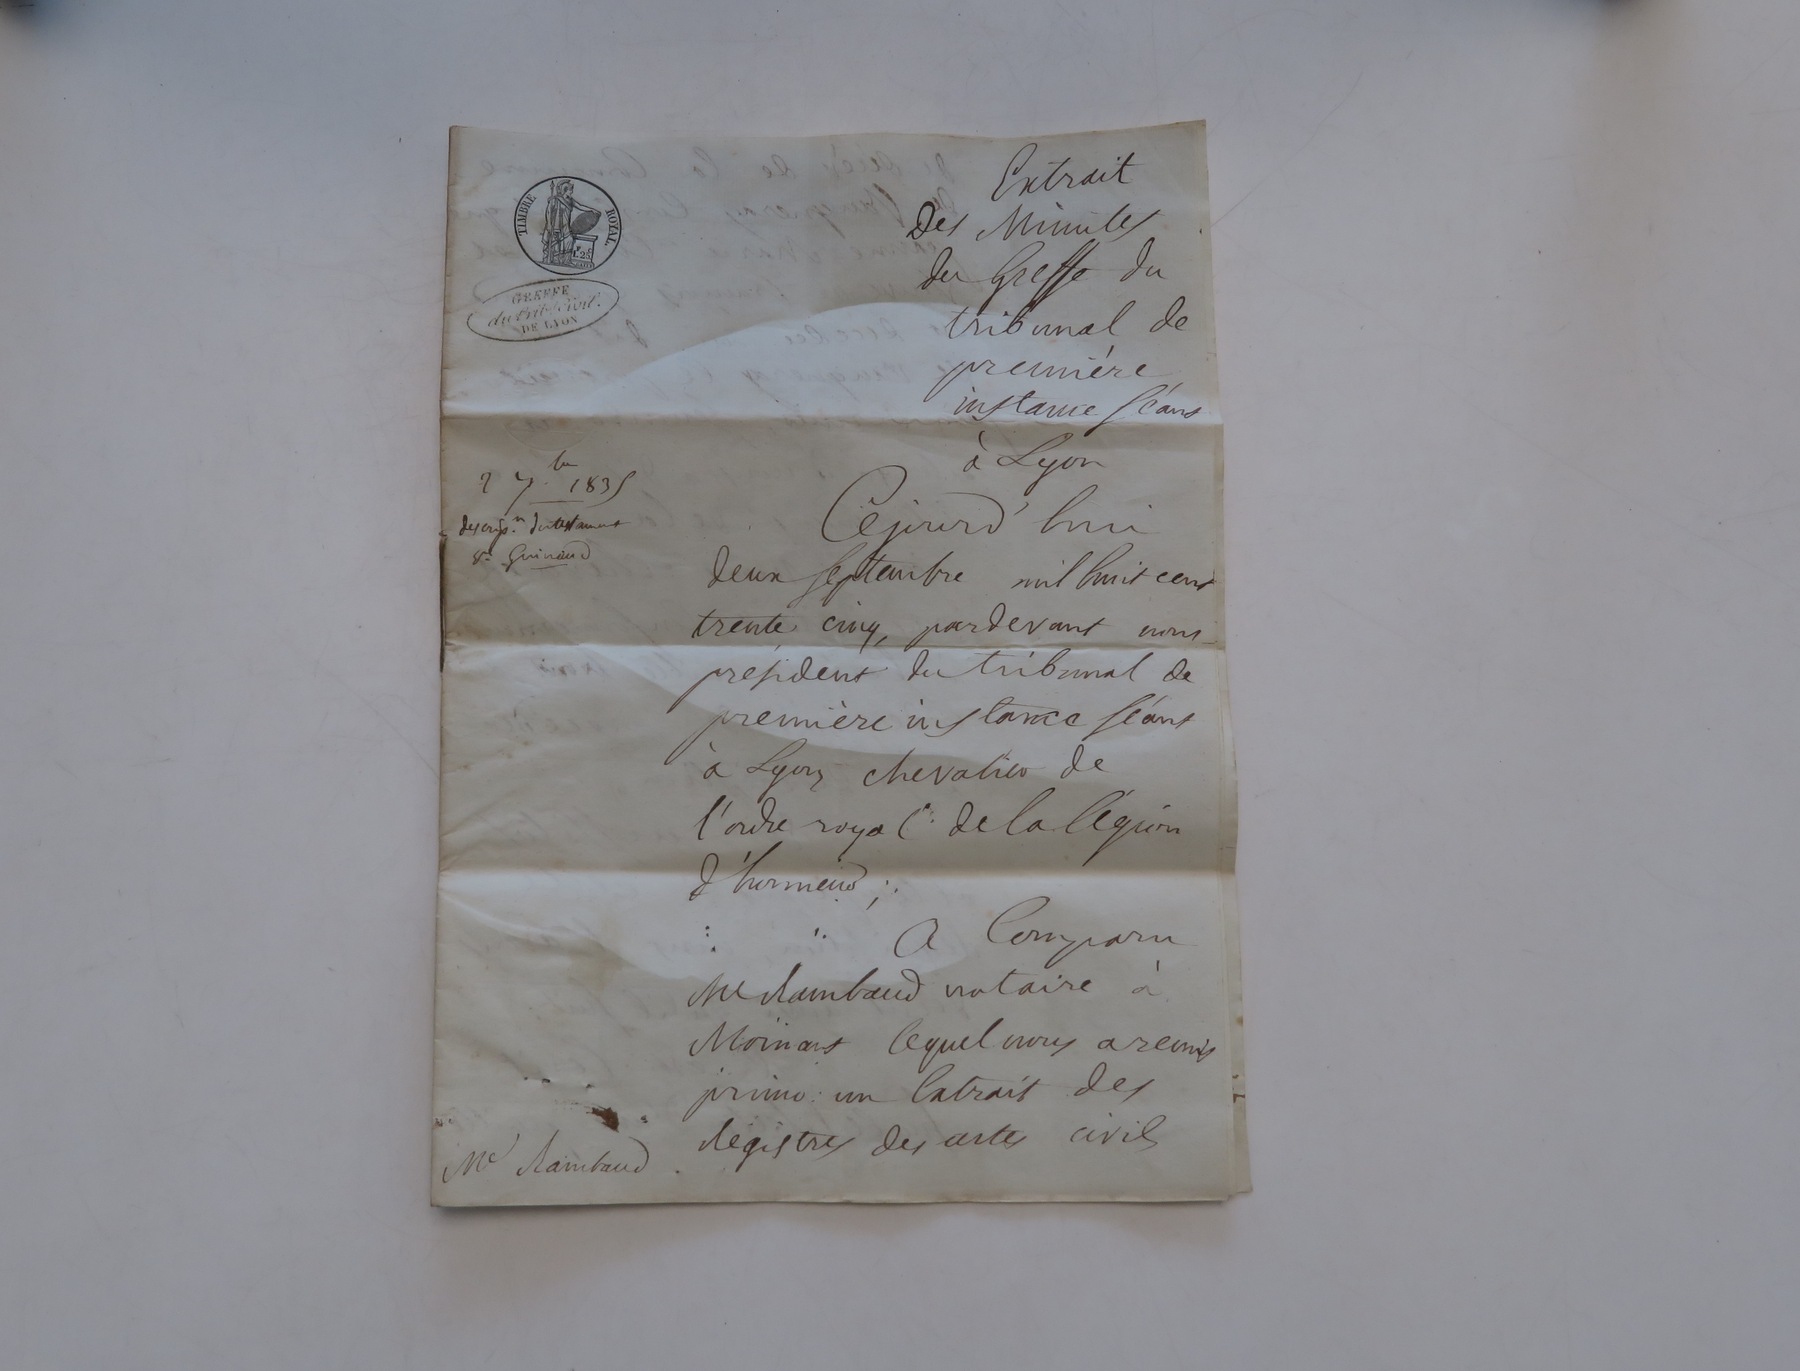 TIMBRE ROYAL.
1.25
GREFFE
du trib. civil.
DE LYON
Extrait
Des Minutes
du Greffe du
tribunal de
première
instance séant
à Lyon
2 7.bre 1835
descrip.n du testament
Guinand
Cejourd'hui
deux septembre mil huit cent
trente cinq, pardevant nous
président du tribunal de
première instance séant
à Lyon chevalier de
l'ordre royal de la légion
d'honneur;
A Comparu
Me Rambaud notaire à
Mornant lequel nous a remis
primo: un Extrait des
Régistres des actes civils
Me Rambaud